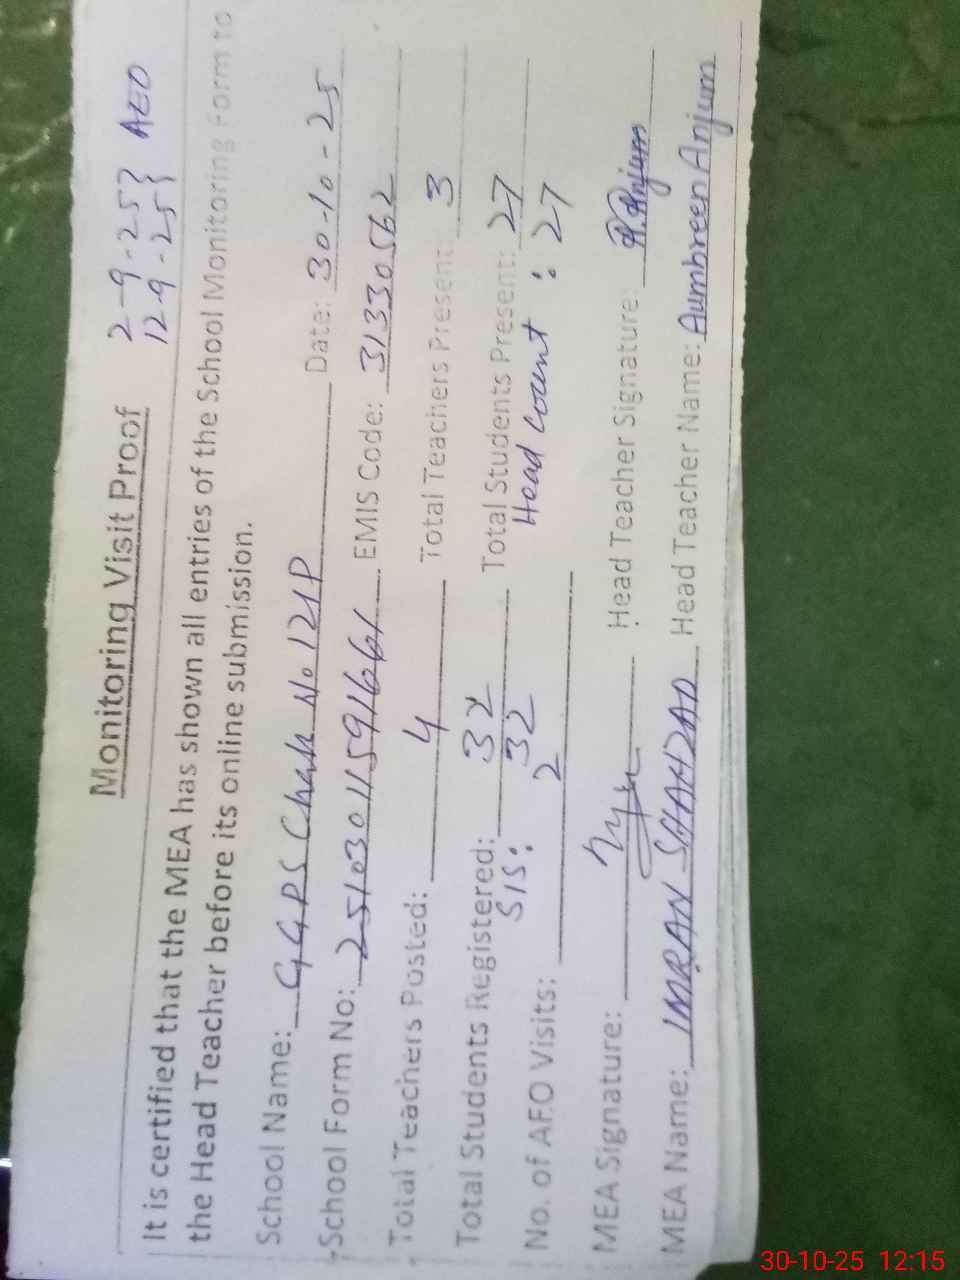 Monitoring Visit Proof
2-9-25 } AEO
12-9-25
It is certified that the MEA has shown all entries of the School Monitoring Form to
the Head Teacher before its online submission.
School Name: GGPS Chak No 121P Date: 30-10-25
School Form No: 2510301159166 EMIS Code: 31330562
Total Teachers Posted: 4 Total Teachers Present: 3
Total Students Registered: 32 Total Students Present: 27
SIS: 32 Head Count : 27
No. of AEO Visits: 2
MEA Signature: Head Teacher Signature: A.Anjum
MEA Name: IMRAN SHAHZAD Head Teacher Name: Aumbreen Anjum
30-10-25 12:15